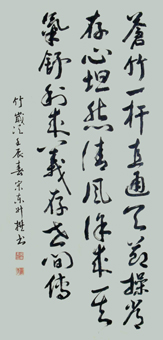 蒼竹一杆直通天節操常
存心坦然清風徐來其
氣舒利來義存世間傳
竹箴 壬辰春宗東升撰書